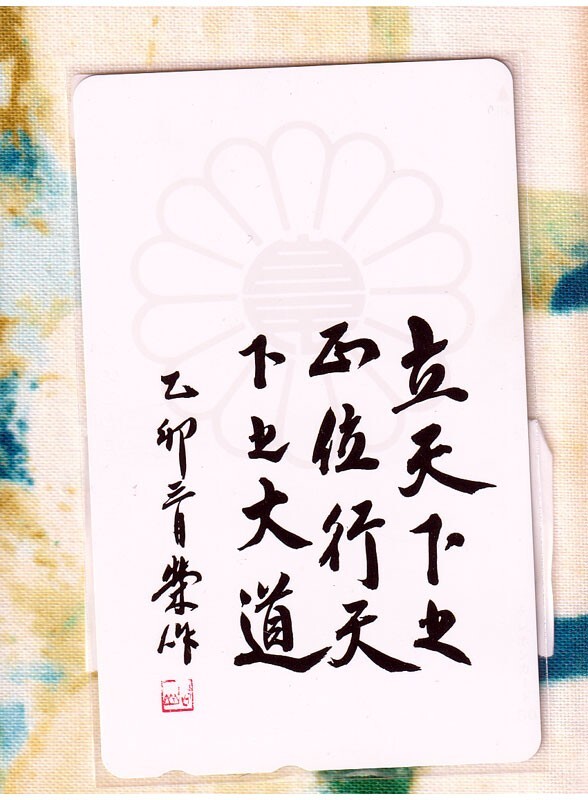 立天下之
正位行天
下之大道
乙卯二月榮作